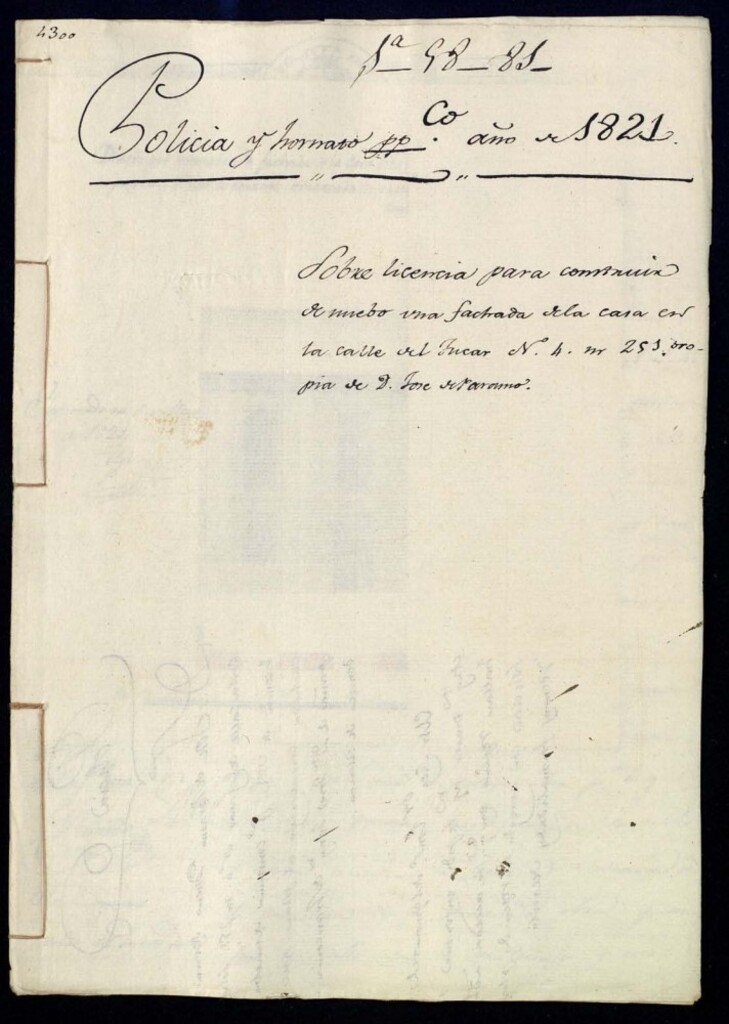 4300
1ª 58-81-
Policia y hornato pp.co año de 1821.
Sobre licencia para construir
de nuebo una fachada dela casa en
la calle del Fucar N. 4. m 251. pro-
pia de D. Jose de Paramo.